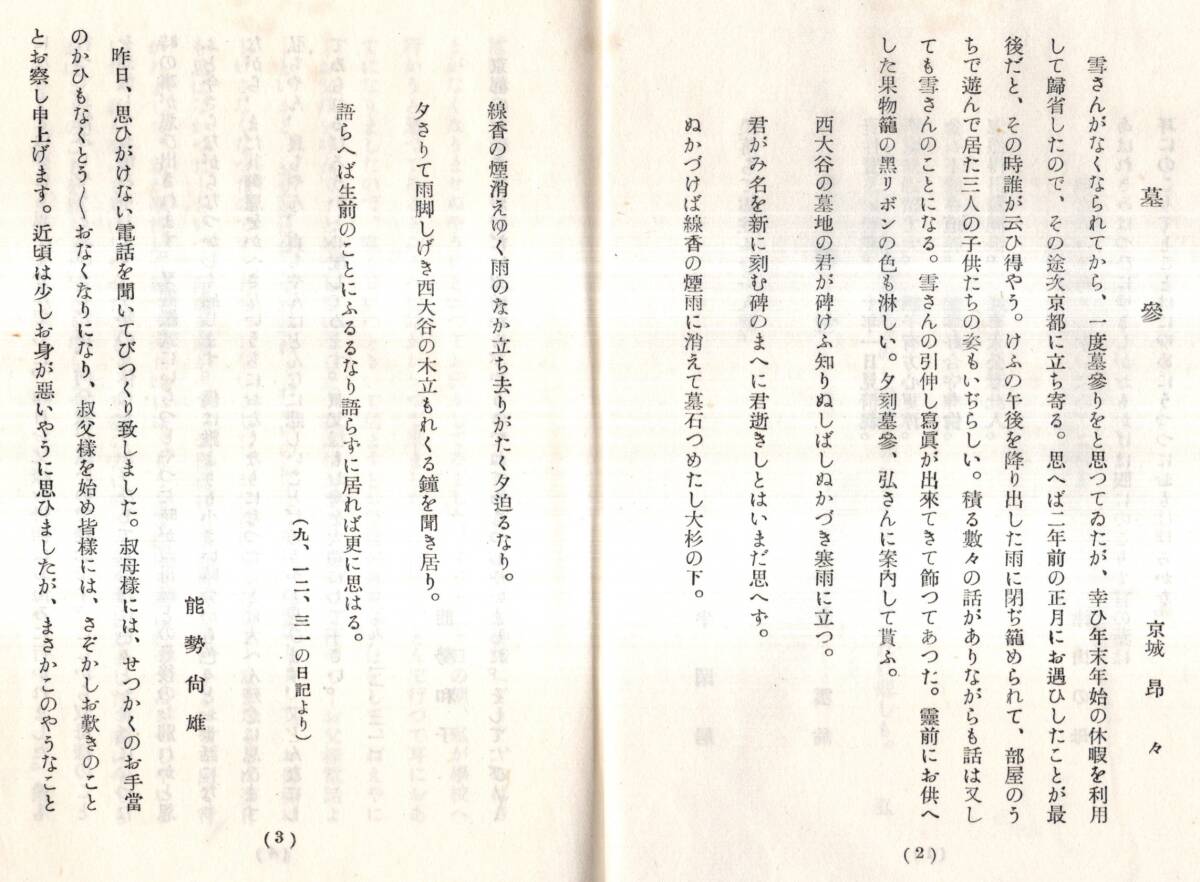 墓參
京城 昂々
雪さんがなくなられてから、一度墓參りをと思つてゐたが、幸ひ年末年始の休暇を利用
して歸省したので、その途次京都に立ち寄る。思へば二年前の正月にお遇ひしたことが最
後だと、その時誰が云ひ得やう。けふの午後を降り出した雨に閉ぢ籠められて、部屋のう
ちで遊んで居た三人の子供たちの姿もいぢらしい。積る數々の話がありながらも話は又し
ても雪さんのことになる。雪さんの引伸し寫眞が出來てきて飾つてあつた。靈前にお供へ
した果物籠の黑リボンの色も淋しい。夕刻墓參、弘さんに案內して貰ふ。
西大谷の墓地の君が碑けふ知りぬしばしぬかづき寒雨に立つ。
君がみ名を新に刻む碑のまへに君逝きしとはいまだ思へず。
ぬかづけば線香の煙雨に消えて墓石つめたし大杉の下。
(2)
線香の煙消えゆく雨のなか立ち去りがたく夕迫るなり。
夕さりて雨脚しげき西大谷の木立もれくる鐘を聞き居り。
語らへば生前のことにふるるなり語らずに居れば更に思はる。
(九、一二、三一の日記より)
能勢尙雄
昨日、思ひがけない電話を聞いてびつくり致しました。叔母樣には、せつかくのお手當
のかひもなくとう〳〵おなくなりになり、叔父樣を始め皆樣には、さぞかしお歎きのこと
とお察し申上げます。近頃は少しお身が悪いやうに思ひましたが、まさかこのやうなこと
(3)